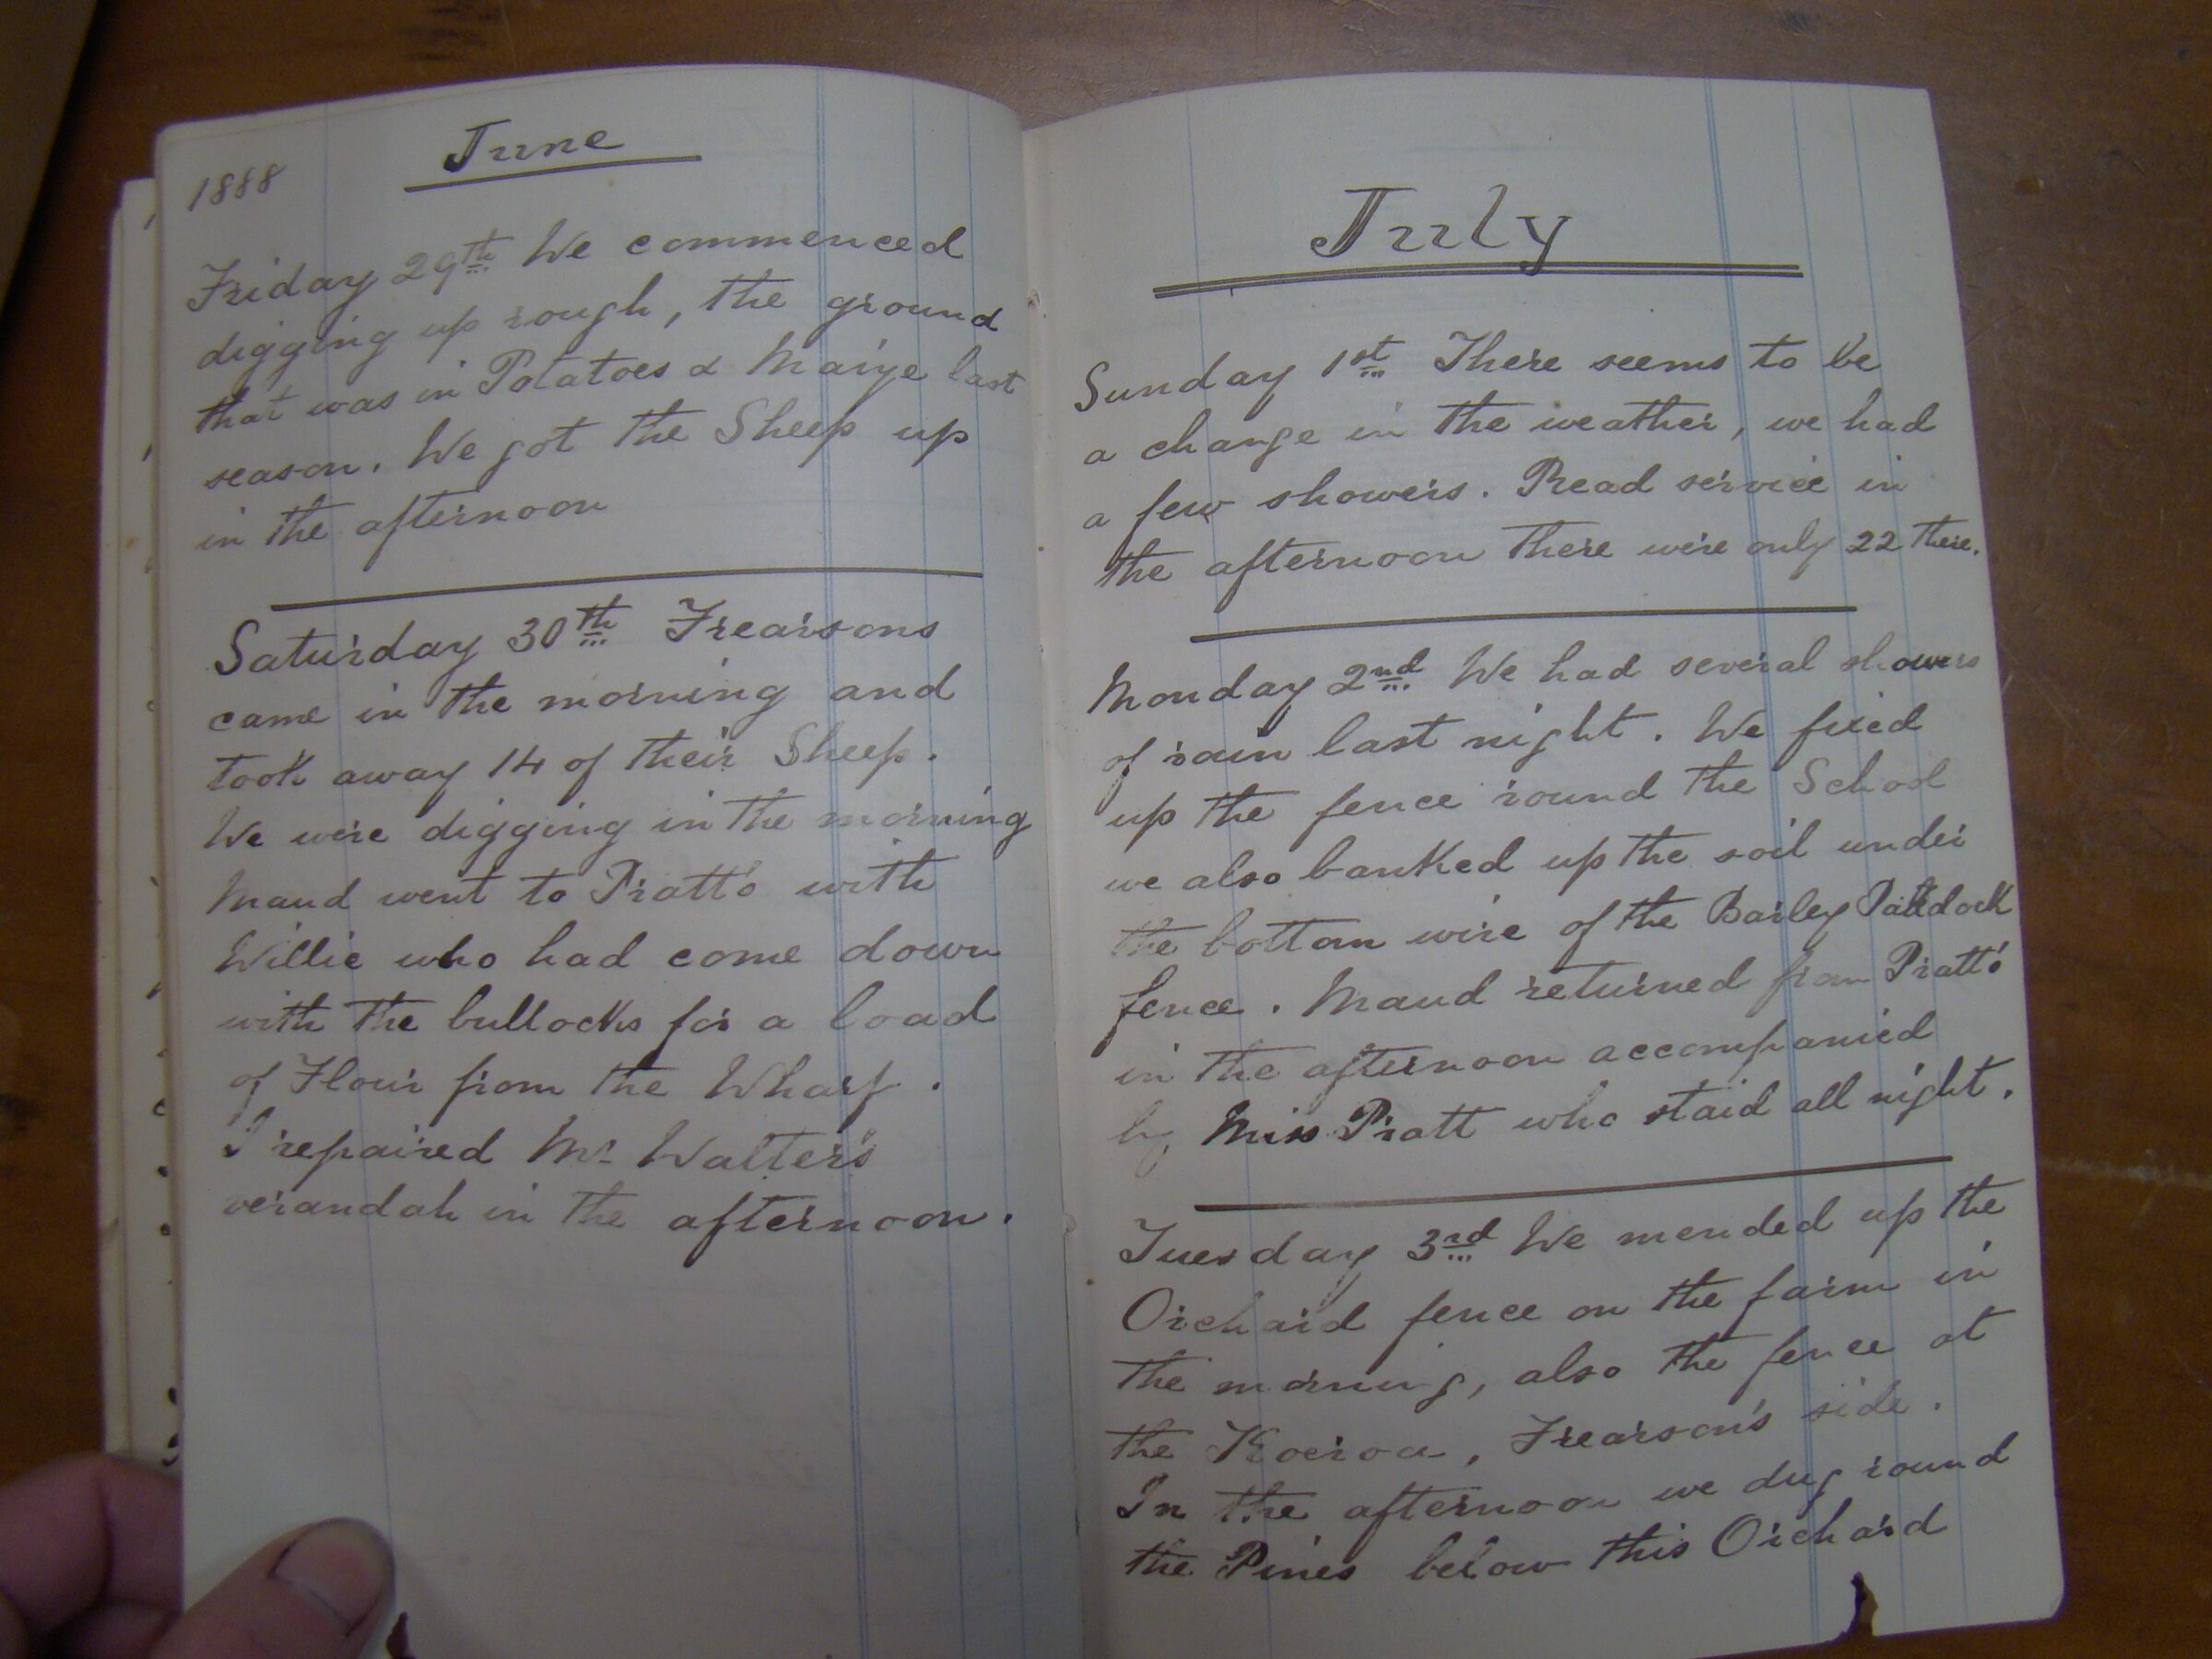 June
1888
Friday 29th We commenced
digging up rough, the ground
that was in Potatoes & Maize last
season. We got the Sheep up
in the afternoon
Saturday 30th Frearsons
came in the morning and
took away 14 of their Sheep.
We were digging in the morning
Maud went to Pratt's with
Willie who had come down
with the bullocks for a load
of Flour from the Wharf.
I repaired Mr Walter's
verandah in the afternoon.
July
Sunday 1st There seems to be
a change in the weather, we had
a few showers. Read service in
the afternoon there were only 22 there.
Monday 2nd We had several showers
of rain last night. We fixed
up the fence round the School
we also banked up the soil under
the bottom wire of the Barley Paddock
fence. Maud returned from Pratt's
in the afternoon accompanied
by Miss Pratt who staid all night.
Tuesday 3rd We mended up the
Orchard fence on the farm in
the morning, also the fence at
the , Frearson's side.
In the afternoon we dug round
the Pines below this Orchard